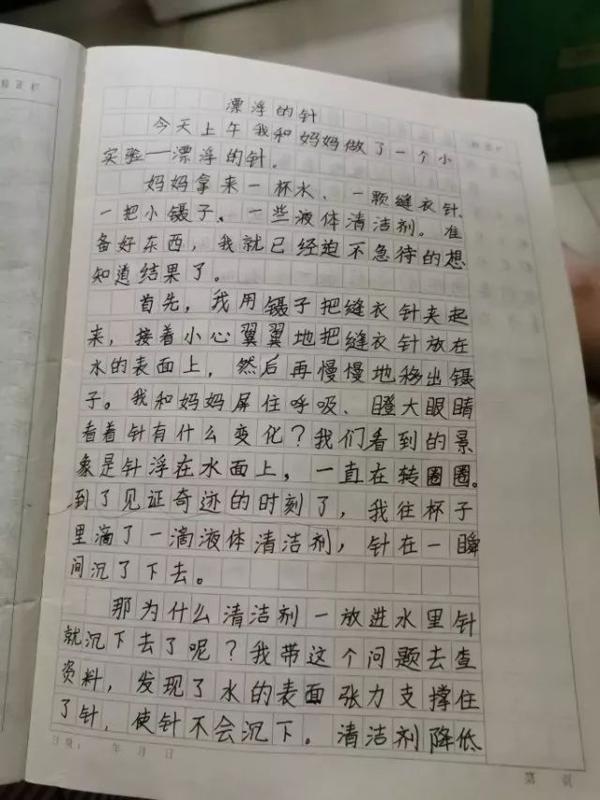 漂浮的针
今天上午我和妈妈做了一个小
实验——漂浮的针.
妈妈拿来一杯水、一颗缝衣针、
一把小镊子、一些液体清洁剂。准
备好东西，我就已经迫不急待的想
知道结果了。
首先，我用镊子把缝衣针夹起
来，接着小心翼翼地把缝衣针放在
水的表面上，然后再慢慢地移出镊
子。我和妈妈屏住呼吸、瞪大眼睛
看着针有什么变化？我们看到的景
象是针浮在水面上，一直在转圈圈。
到了见证奇迹的时刻了，我往杯子
里滴了一滴液体清洁剂，针在一瞬
间沉了下去。
那为什么清洁剂一放进水里针
就沉下去了呢？我带这个问题去查
资料，发现了水的表面张力支撑住
了针，使针不会沉下。清洁剂降低
日期： 年 月 日
第 页